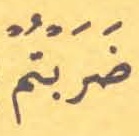 ضَرَبْتُمْ